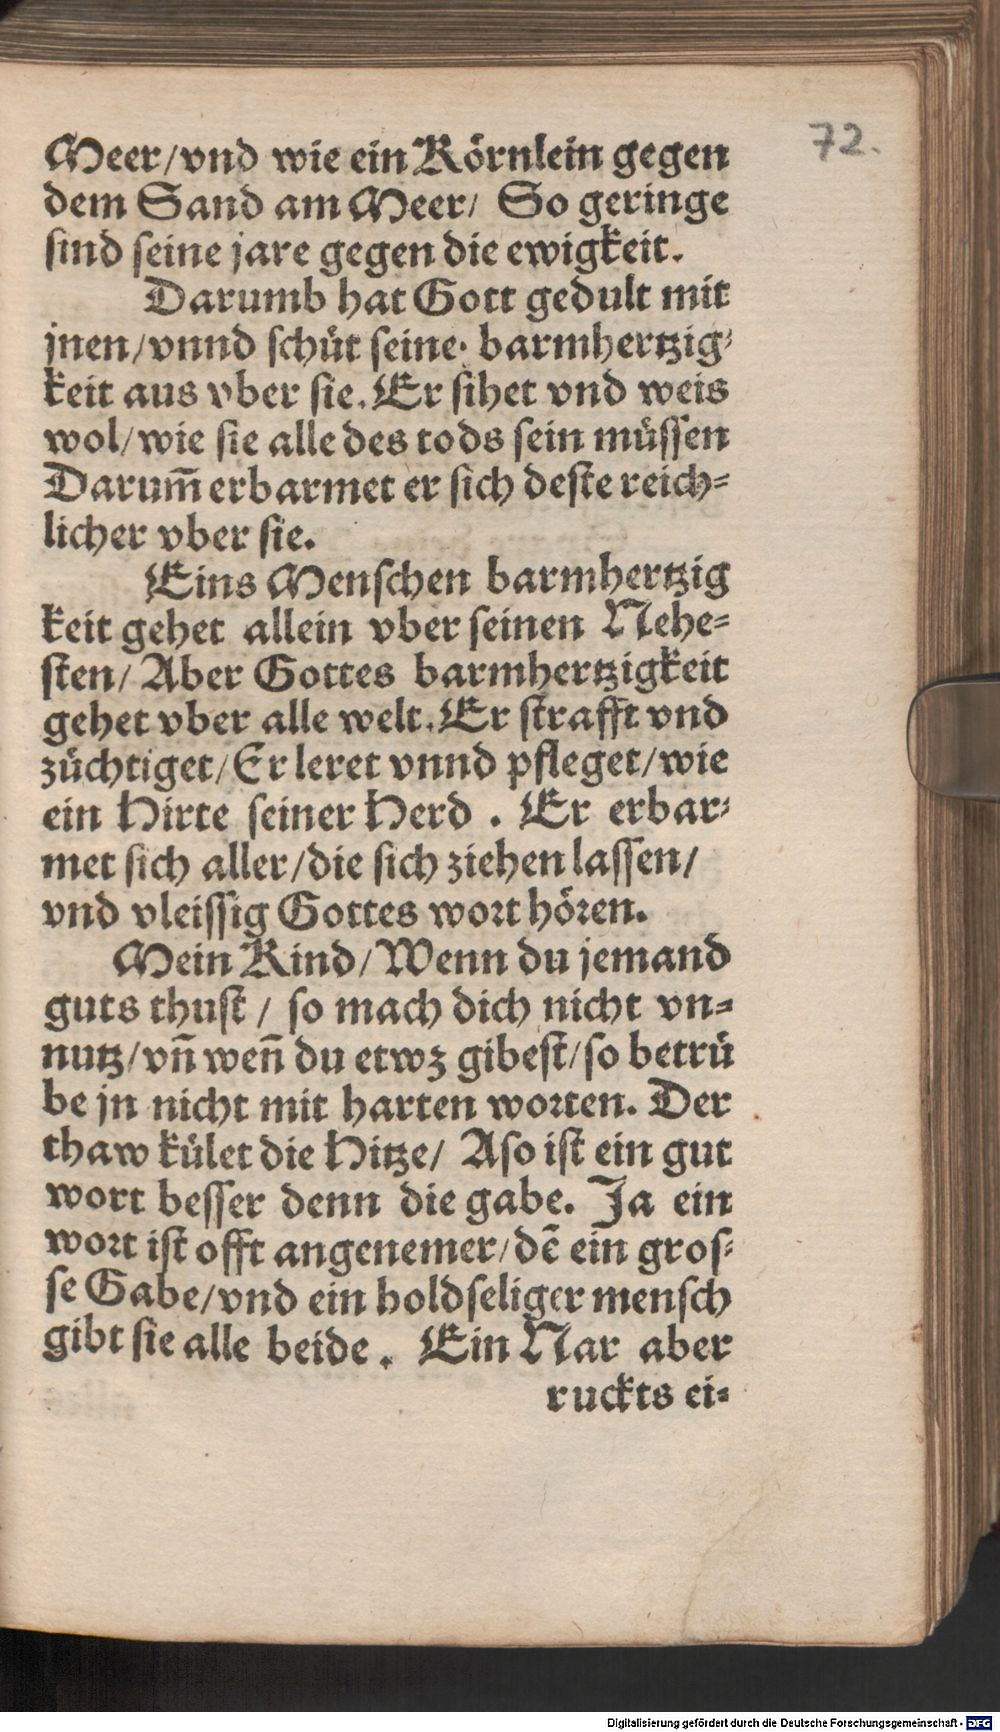 72.
Meer/vnd wie ein Körnlein gegen
dem Sand am Meer/ So geringe
sind seine jare gegen die ewigkeit.
Darumb hat Gott gedult mit
jnen/vnnd schüt seine barmhertzig-
keit aus vber sie. Er sihet vnd weis
wol/wie sie alle des tods sein müssen
Darum̃ erbarmet er sich deste reich-
licher vber sie.
Eins Menschen barmhertzig
keit gehet allein vber seinen Nehe-
sten/ Aber Gottes barmhertzigkeit
gehet vber alle welt. Er strafft vnd
züchtiget/Er leret vnnd pfleget/wie
ein Hirte seiner Herd . Er erbar-
met sich aller/die sich ziehen lassen/
vnd vleissig Gottes wort hören.
Mein Kind/Wenn du jemand
guts thust / so mach dich nicht vn-
nutz/vñ weñ du etwz gibest/so betrü
be jn nicht mit harten worten. Der
thaw kület die Hitze/ Aso ist ein gut
wort besser denn die gabe. Ja ein
wort ist offt angenemer/dẽ ein gros-
se Gabe/vnd ein holdseliger mensch
gibt sie alle beide . Ein Nar aber
ruckts ei-
Digitalisierung gefördert durch die Deutsche Forschungsgemeinschaft - DFG